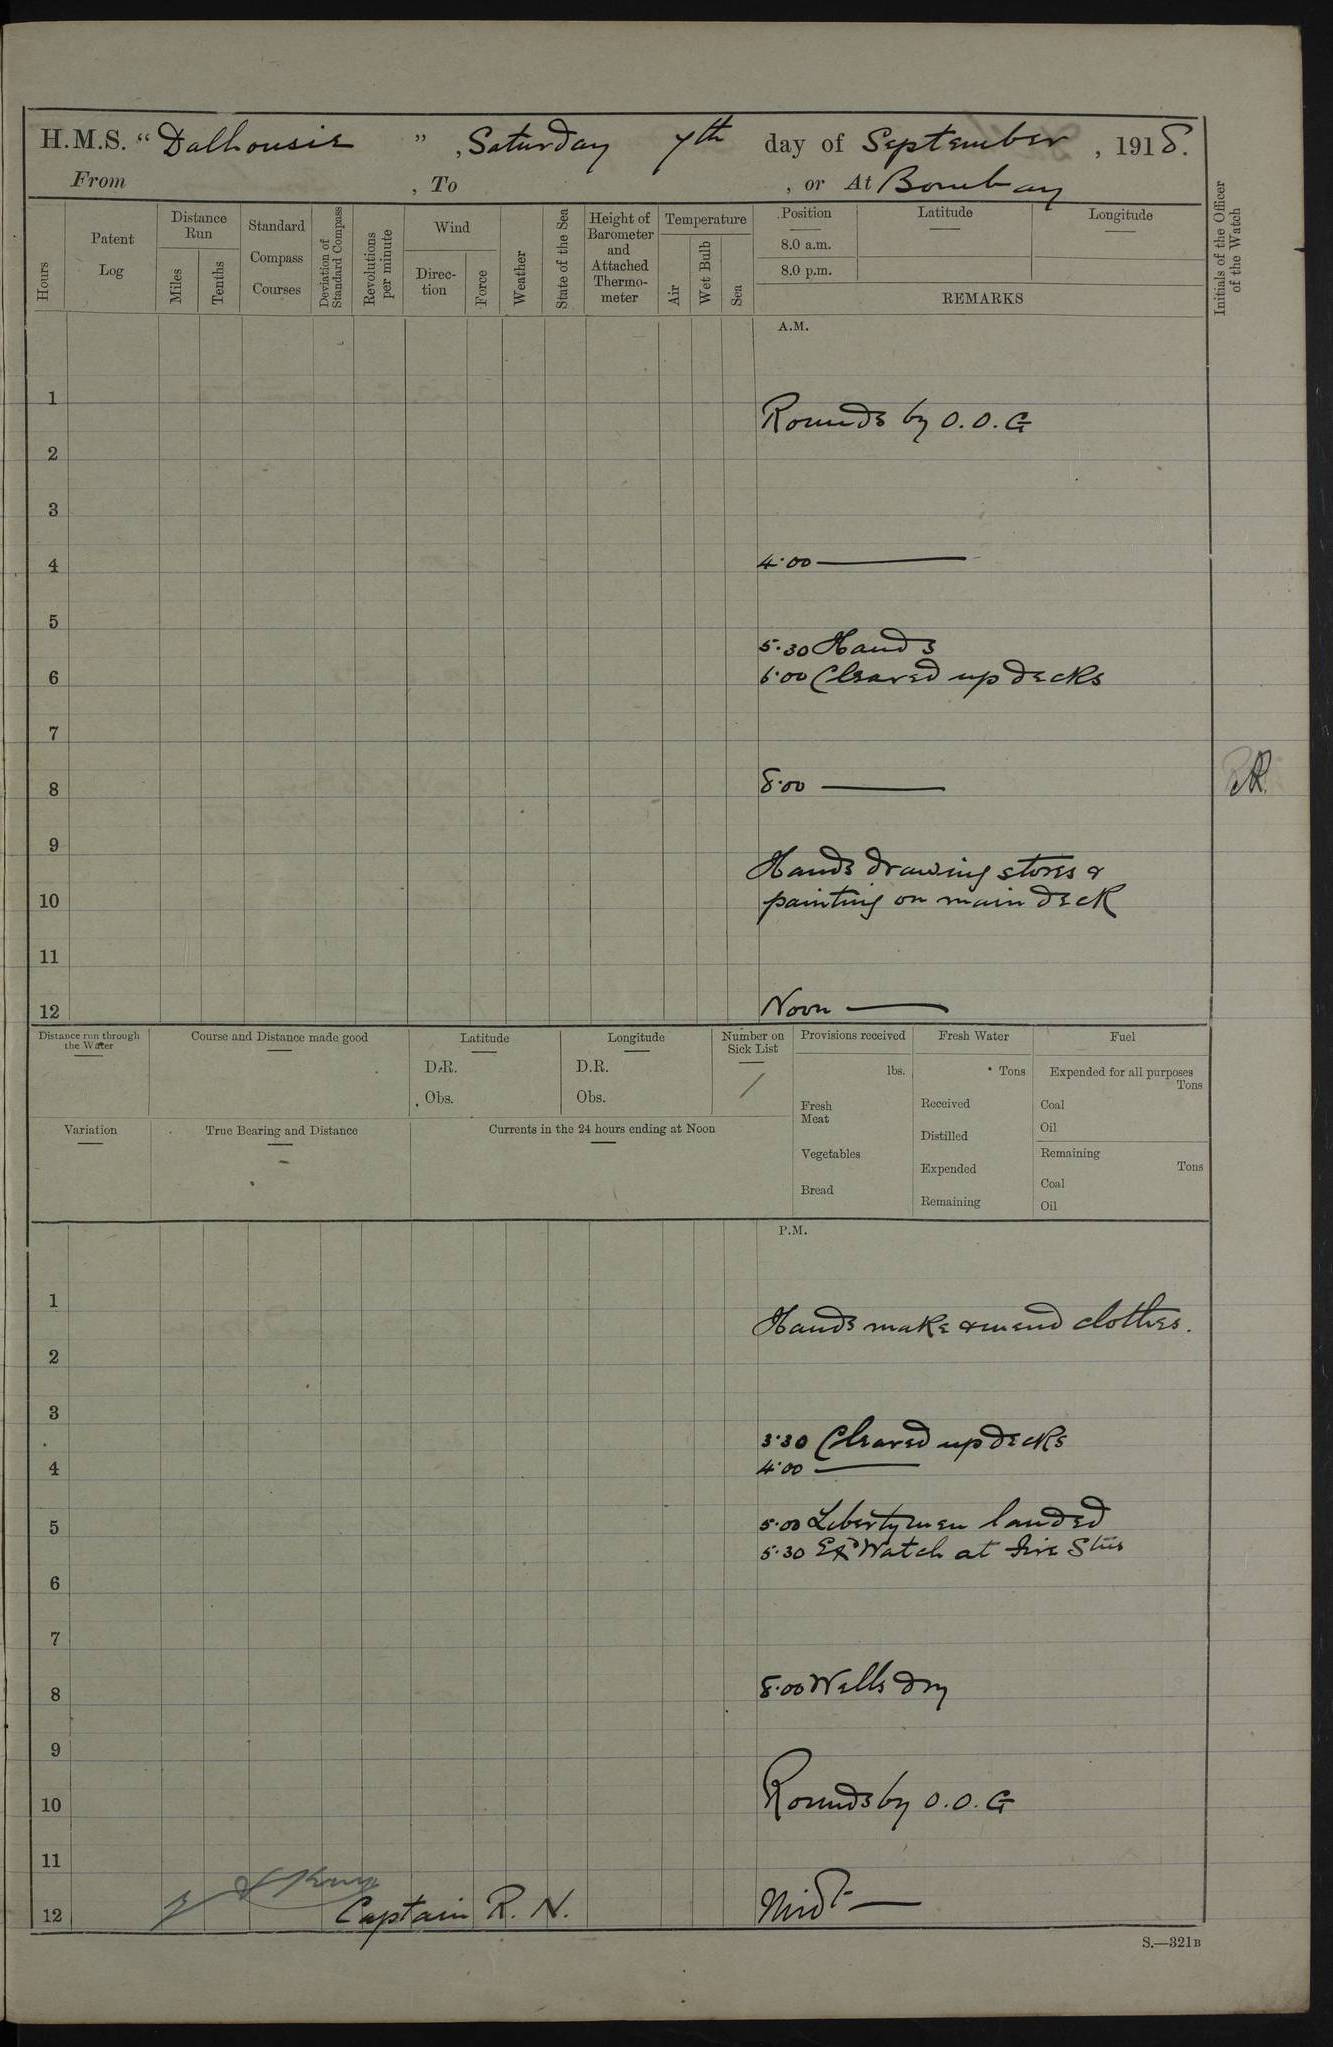 H.M.S. “Dalhousie”, Saturday 7th day of September, 1918.
From , To , or At Bombay
Hours
Patent Log
Distance Run
Miles
Tenths
Standard Compass Courses
Deviation of Standard Compass
Revolutions per minute
Wind
Direc-tion
Force
Weather
State of the Sea
Height of Barometer and Attached Thermo-meter
Temperature
Air
Wet Bulb
Sea
Position
8.0 a.m.
8.0 p.m.
Latitude
Longitude
REMARKS
Initials of the Officer of the Watch
A.M.
1
Rounds by O.O.G
2
3
4
4.00
5
5.30 Hands
6
6.00 Cleared up decks
7
8
8.00
9
Hands drawing stores &
10
painting on main deck
11
12
Noon
Distance run through the Water
Course and Distance made good
Latitude
D.R.
Obs.
Longitude
D.R.
Obs.
Number on Sick List
/
Provisions received
lbs.
Fresh Meat
Vegetables
Bread
Fresh Water
Tons
Received
Distilled
Expended
Remaining
Fuel
Expended for all purposes
Tons
Coal
Oil
Remaining
Tons
Coal
Oil
Variation
True Bearing and Distance
Currents in the 24 hours ending at Noon
P.M.
1
Hands make & mend clothes.
2
3
3.30 Cleared up decks
4
4.00
5
5.00 Libertymen landed
5.30 Watch at fire Stns
6
7
8
8.00 Wells dry
9
10
Rounds by O.O.G
11
12
Captain R.N.
Midt
S.—321B